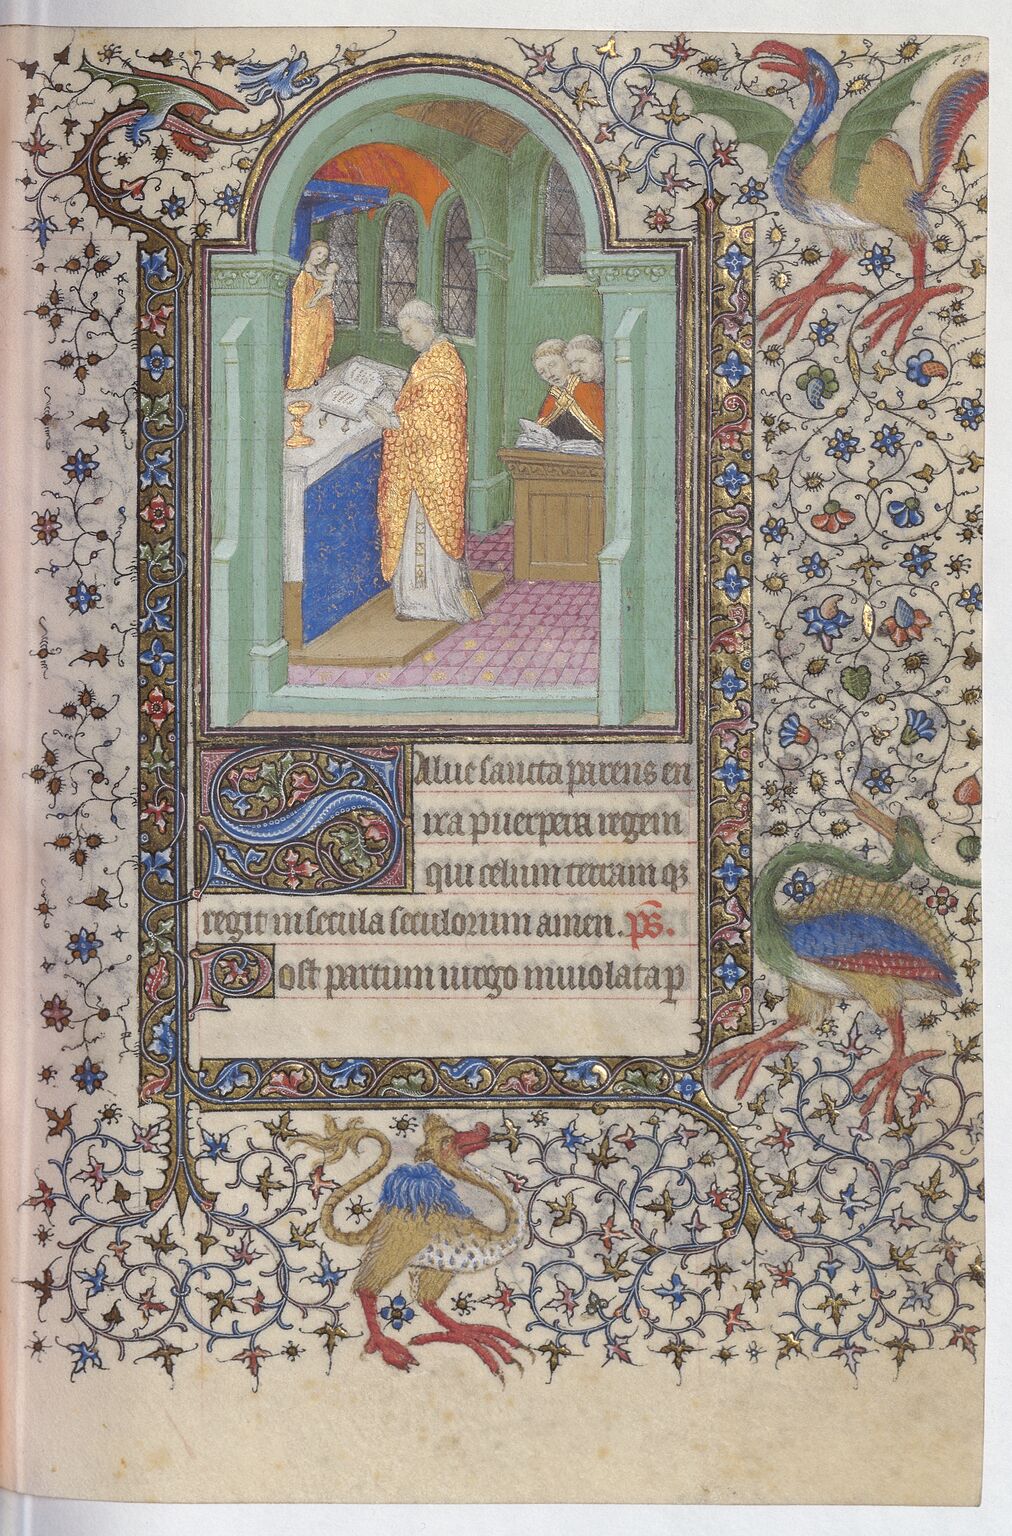 Salue sancta parens en
ixa puerpera regem
qui celum terram qꝫ
regit in secula seculorum amen. p̄s.
Post partum uirgo inuiolata p